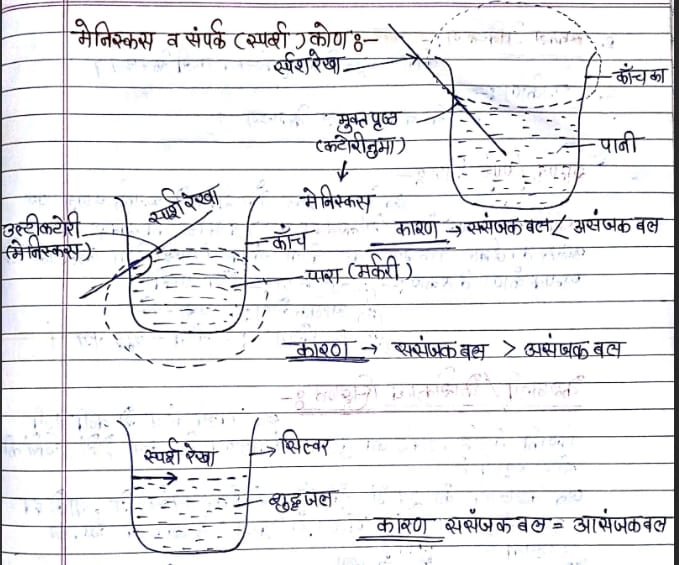 मेनिस्कस व संपर्क (स्पर्श) कोण :-
स्पर्श रेखा
काँच का
मुक्त पृष्ठ
(कटोरीनुमा)
पानी
मेनिस्कस
कारण → ससंजक बल < आसंजक बल
स्पर्श रेखा
उल्टी कटोरी
(मेनिस्कस)
काँच
पारा (मर्करी)
कारण → ससंजक बल > आसंजक बल
स्पर्श रेखा
सिल्वर
शुद्ध जल
कारण ससंजक बल = आसंजक बल